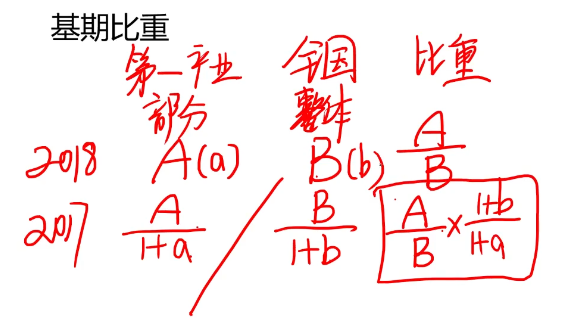 基期比重
第一产业 全国 比重
部分 整体
2018 A(a) B(b) A/B
2017 A/(1+a) / B/(1+b) A/B × (1+b)/(1+a)